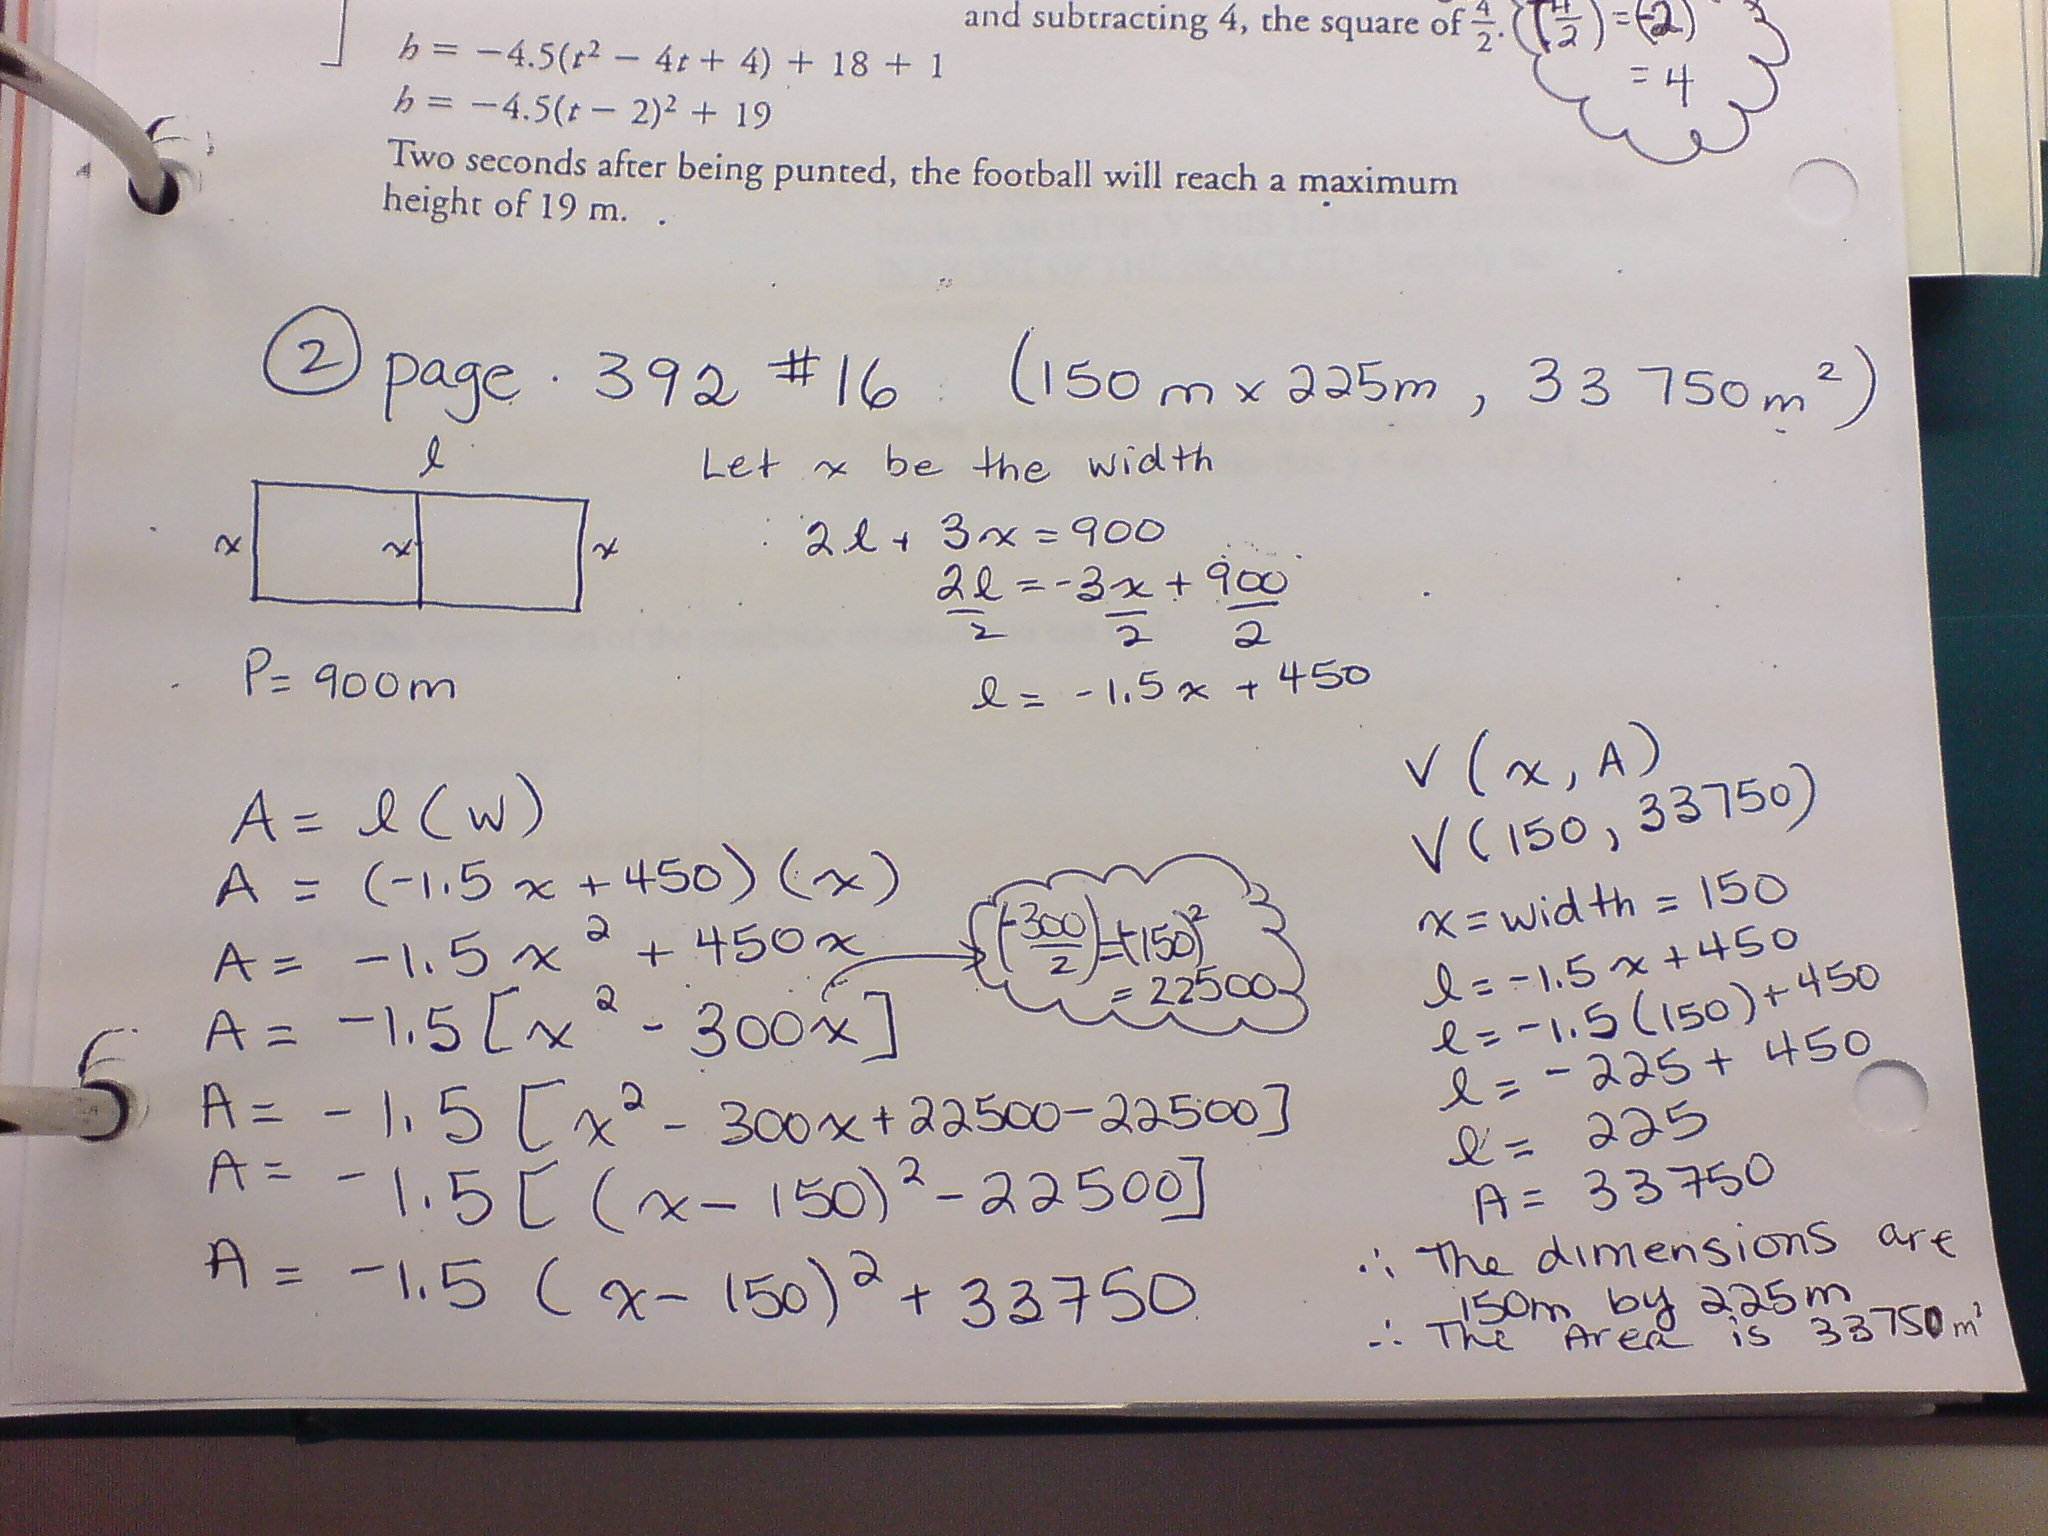 and subtracting 4, the square of 4/2. = (-2)
= 4
h = −4.5(t² − 4t + 4) + 18 + 1
h = −4.5(t − 2)² + 19
Two seconds after being punted, the football will reach a maximum
height of 19 m.
② page. 392 #16 (150m x 225m, 33 750m²)
l
x x x
P= 900m
Let x be the width
2l + 3x = 900
2l/2 = -3x/2 + 900/2
l = -1.5x + 450
A = l(w)
A = (-1.5x + 450)(x)
A = -1.5x² + 450x
A = -1.5[x² - 300x]
(-300/2) = (-150)²
= 22500
A = -1.5[x² - 300x + 22500 - 22500]
A = -1.5[(x - 150)² - 22500]
A = -1.5(x - 150)² + 33750
V(x, A)
V(150, 33750)
x = width = 150
l = -1.5x + 450
l = -1.5(150) + 450
l = -225 + 450
l = 225
A = 33750
∴ The dimensions are
150m by 225m
∴ The Area is 33750m²